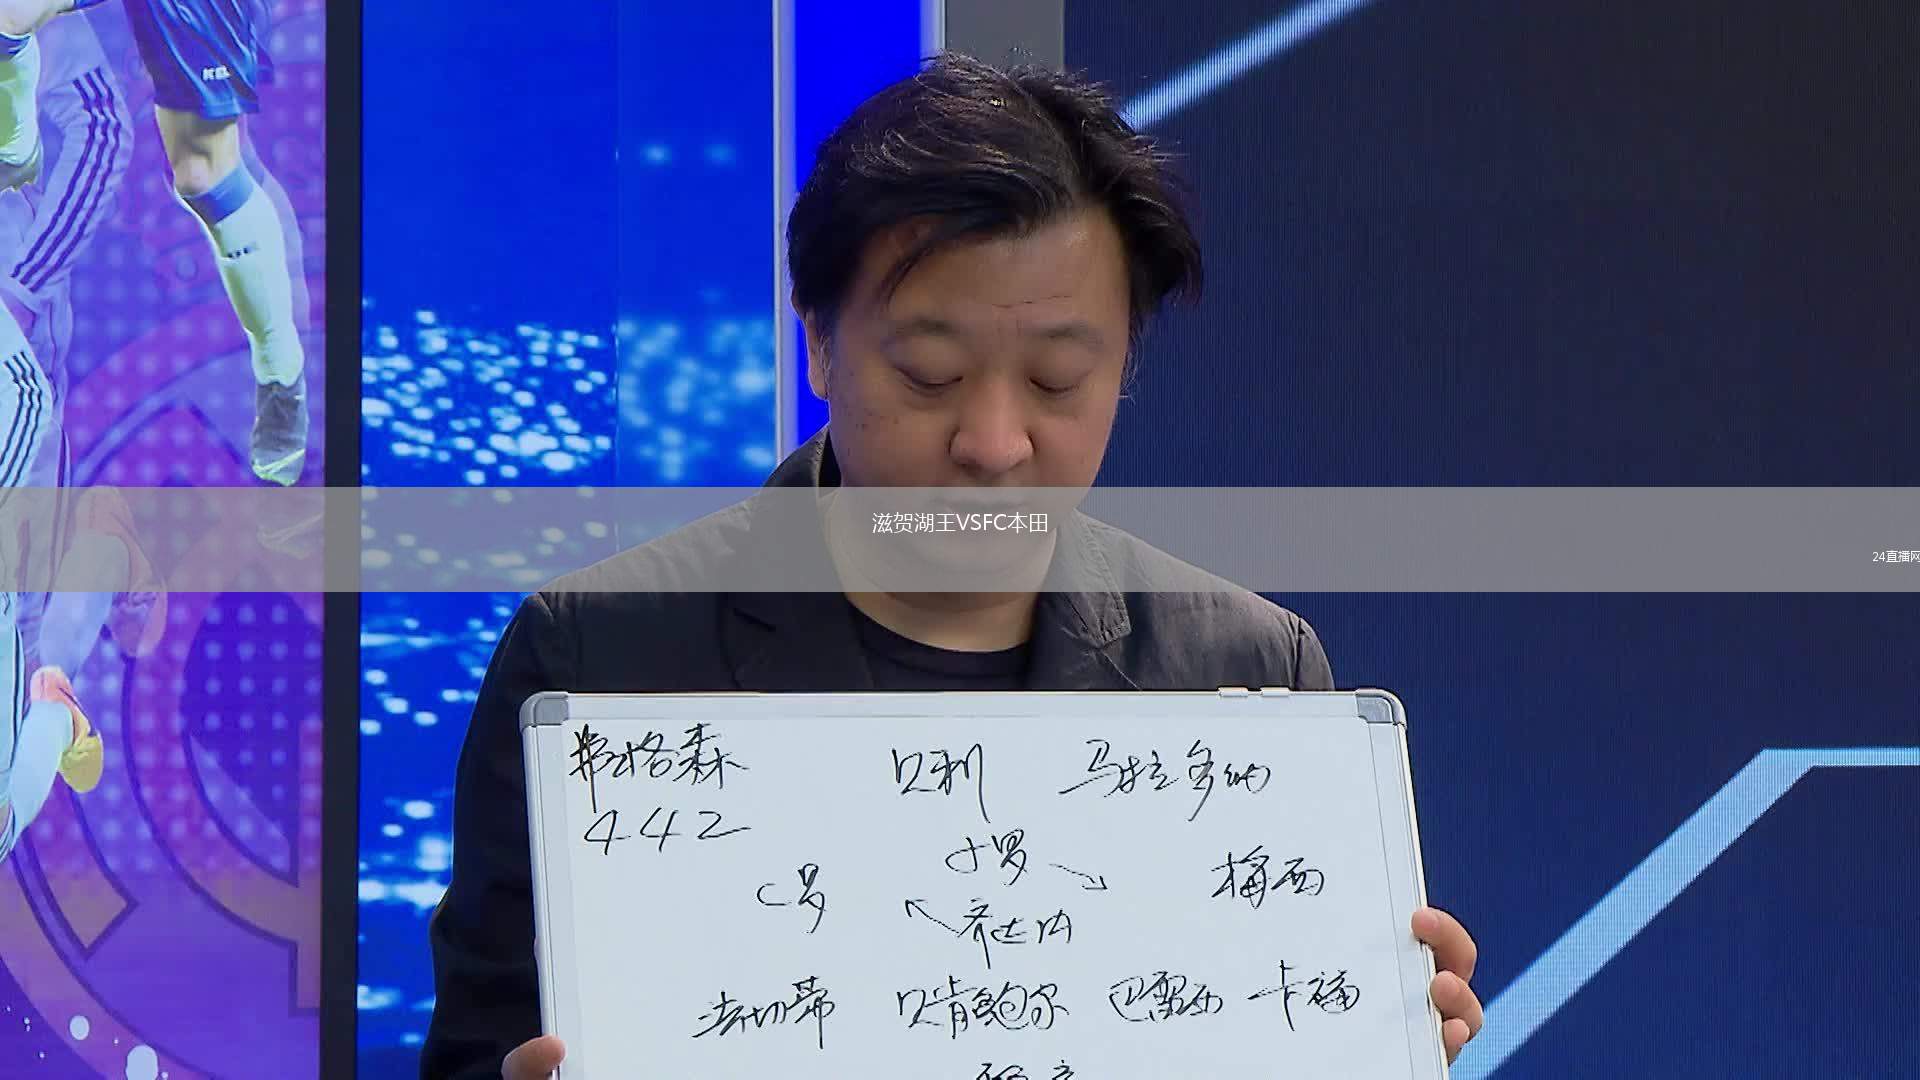 滋贺湖王VSFC本田
24直播网
弗格森 贝利 马拉多纳
442
小罗
C罗 梅西
齐达内
法切蒂 贝肯鲍尔 巴雷西 卡福